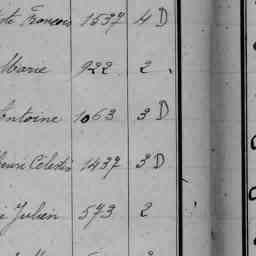 François 1537 4 D
Marie 922 2
Antoine 1063 3 D
Célestin 1437 3 D
Julien 573 2